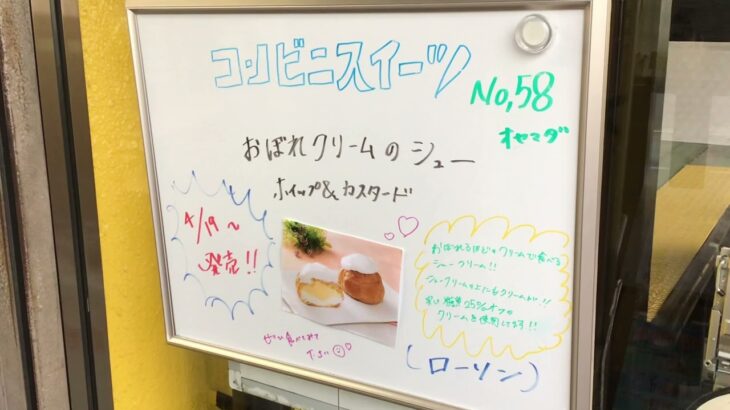 コンビニスイーツ
No,58
オヤマダ
おぼれクリームのシュー
ホイップ&カスタード
4/19～
発売!!
おぼれるほどのクリームで食べる
シュークリーム!!
シュークリームの上にもクリームが!!
糖質25%オフの
クリームを使用してます!!
ぜひ食べてみて
下さい
(ローソン)